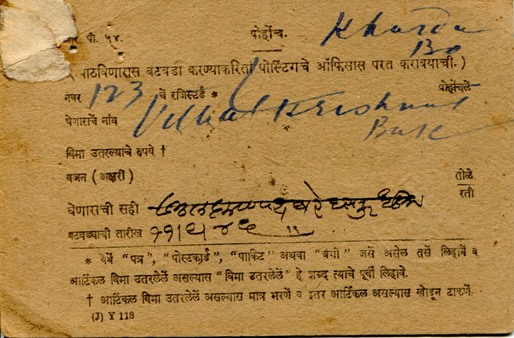 आर. पी. ५४. पोहोंच. Khurda
Bo
( पाठविणारास बटवडा करण्याकरितां पोस्टिंगचे ऑफिसास परत करावयाची. )
नंबर 123 चे रजिस्टर्ड * पोहोंचलें
घेणाराचें नांव Vithal Krishna
विमा उतरल्याचे रुपये †
वजन (अक्षरी) तोळे
रती
घेणाराची सही
बटवड्याची तारीख
* येथें "पत्र", "पोस्टकार्ड", "पाकिट" अथवा "बंगी" जसें असेल तसें लिहावें व
आर्टिकल विमा उतरलेलें असल्यास "विमा उतरलेलें" हे शब्द त्याचे पूर्वी लिहावे.
† आर्टिकल विमा उतरलेलें असल्यास मात्र भरणें व इतर आर्टिकल असल्यास खोडून टाकणें.
(J) Y 118